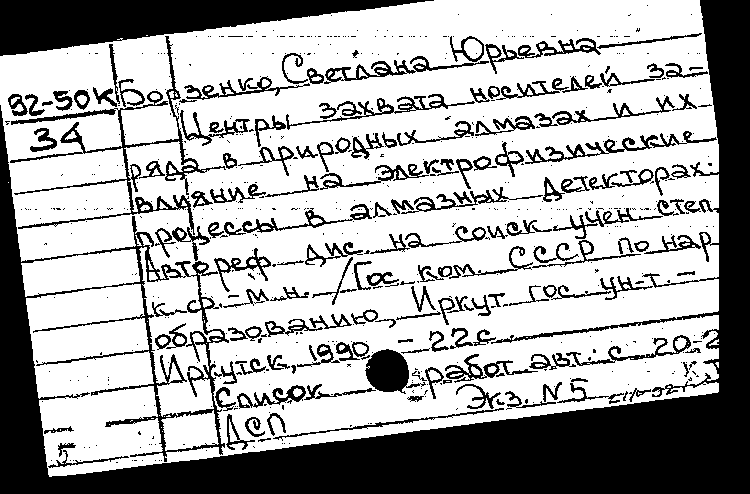 92-50К
34
Борзенко, Светлана Юрьевна
Центры захвата носителей за-
ряда в природных алмазах и их
влияние на электрофизические
процессы в алмазных детекторах:
Автореф. дис. на соиск. учен. степ.
к. ф.-м. н. / Гос. ком. СССР по нар.
образованию, Иркут. гос. ун-т. -
Иркутск, 1990 - 22 с.
Список работ авт.: с. 20-2
ДСП Экз. N 5
5